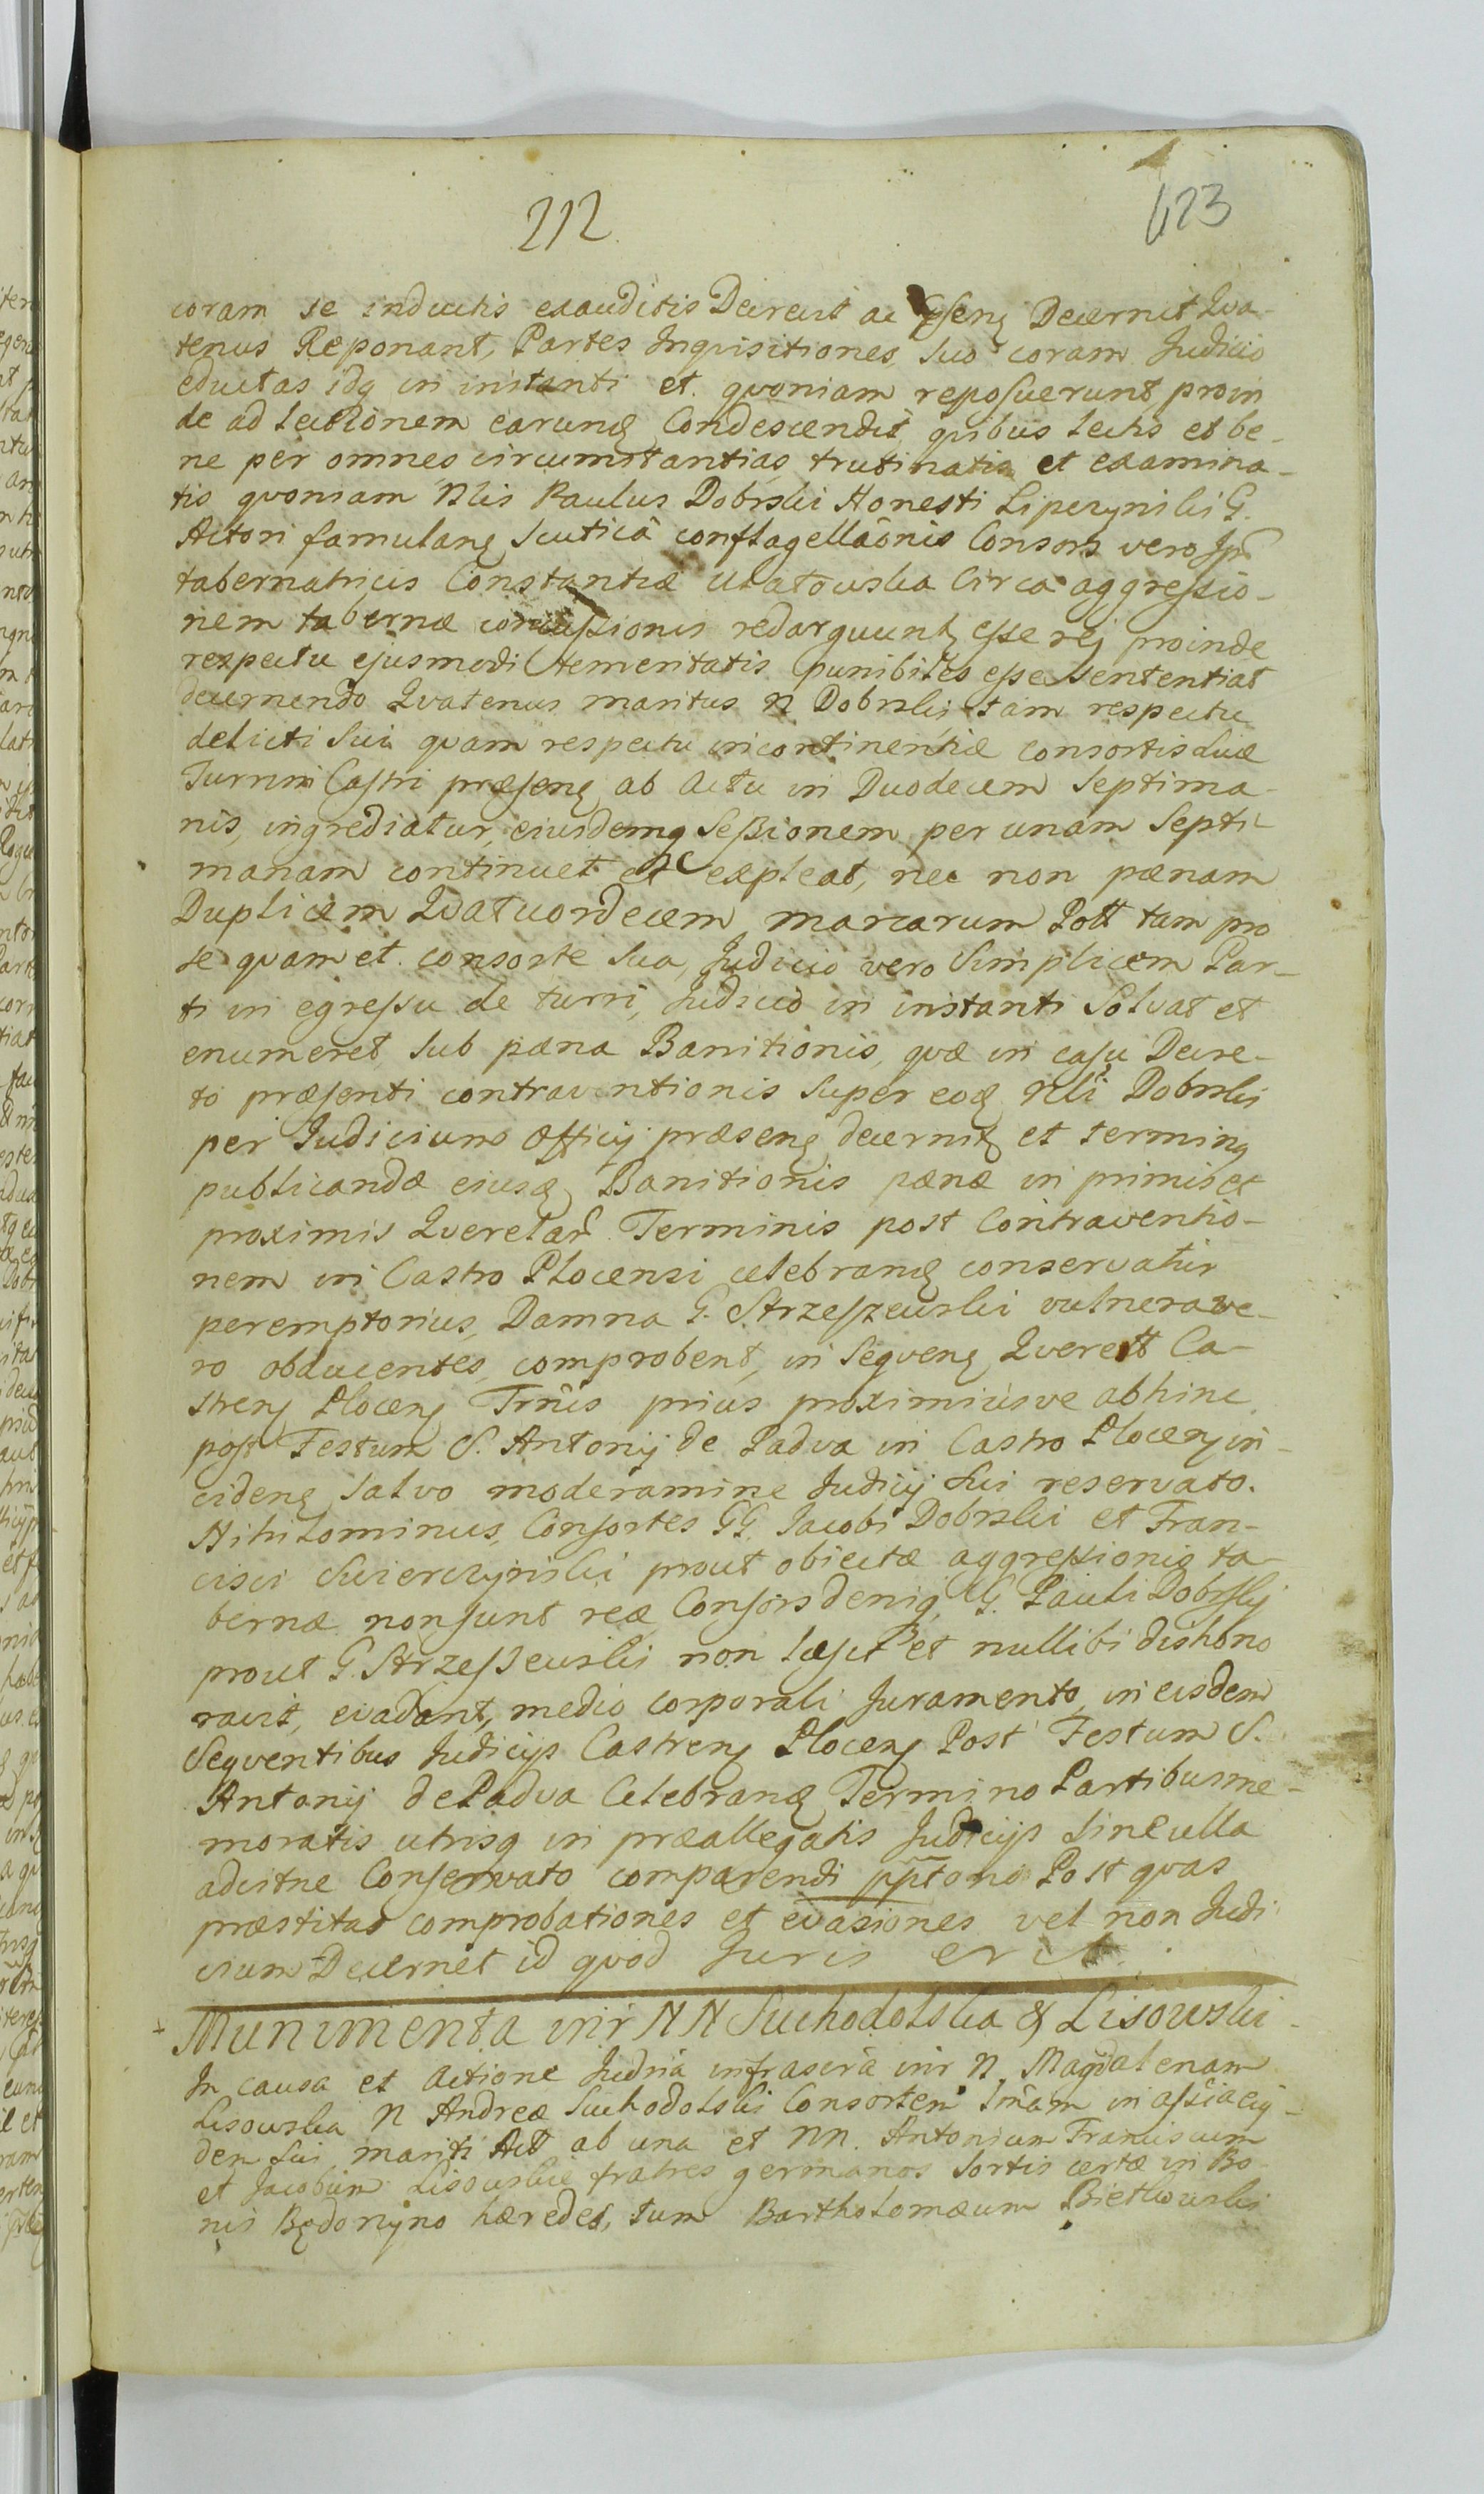 212
423
coram se inductis exauditis Decrevit ac pseng Decernit Qva
tenus Reponant, Partes Inquisitiones, suo coram Judicio
eductas idq in instanti et qvoniam reposuerunt proin
de ad lectionem earundem Condescendit, qvibus lectis et be-
ne per omnes circumstantias trutinatis et examina-
tis qvoniam Nlis Paulus Dobrski Honesti Lipczynski G.
Actori famulang scuticâ conflagellaõnis Consors vero
tabernatricis Constantiæ Circa aggressio-
nem tabernæ concussionis redarguunt esse rej proinde
respectu ejusmodi temeritatis punibiles esse sententiat
decernendo Qvatenus maritus N Dobrski tam respectu
delicti sui qvam respectu incontinentiæ consortis suæ
Turrim Castri præseng ab actu in Duodecem Septima-
nis, ingrediatur, eiusdemq Sessionem per unam Septi-
manam continuet et expleat, nec non pænam
Duplicem Qvatuordecem marcarum Poll tam pro
se qvam et consorte sua, Judicio vero Simplicem Par-
ti in egressu de turri, Judicio in instanti Solvat et
enumeret sub pæna Banitionis, qvæ in casu Decre-
to præsenti contraventionis super eod Nli Dobrski
per Judicium Officij præseng decernit et terming
publicandæ eiusd Banitionis pænæ in primis et
proximis Qverelar Terminis post Contraventio-
nem in Castro Plocensi celebrand conservatur
peremptorius, Damna G. Strzeszewski vulnera ve-
ro obducentes, comprobent, in Seqveng Qverell Ca-
streng Ploceng Trnis prius proximiusve abhinc
post Festum S. Antonij de Padva in Castro Ploceng in-
cideng salvo moderamine Judicij sui reservato.
Nihilominus, Consortes GG. Jacobi Dobrski et Fran-
cisci Swierczynski prout obiectæ aggressionis ta-
bernæ non sunt reæ Consors deniq, G. Pauli Dobrskj
prout G. Strzeszewski non læsit et nullibi dishono
ravit, evadant, medio corporali Juramento, in eisdem
Seqventibus Judicijs Castreng Ploceng Post Festum S.
Antonij de Padva Celebrand Termino Partibus me-
moratis utrisq in præallegatis Judicijs sine ulla
adcitne Conservato comparendi pptorio Post qvas
præstitas comprobationes et evasiones vel non Judi
cium Decernet id qvod Juris erit.
Munimenta intr NN Suchodolska & Lisowski
In causa et actione Judria infrascra intr N. Magdalenam
Lisowska N Andreæ Suchodolski Consortem in assia eij-
dem sui mariti Act ab una et NN. Antonium Franciscum
et Jacobum Lisowskie fratres germanos sortis certæ in Bo-
nis Będonyno hæredes, tum Bartholomæum Bietkowski